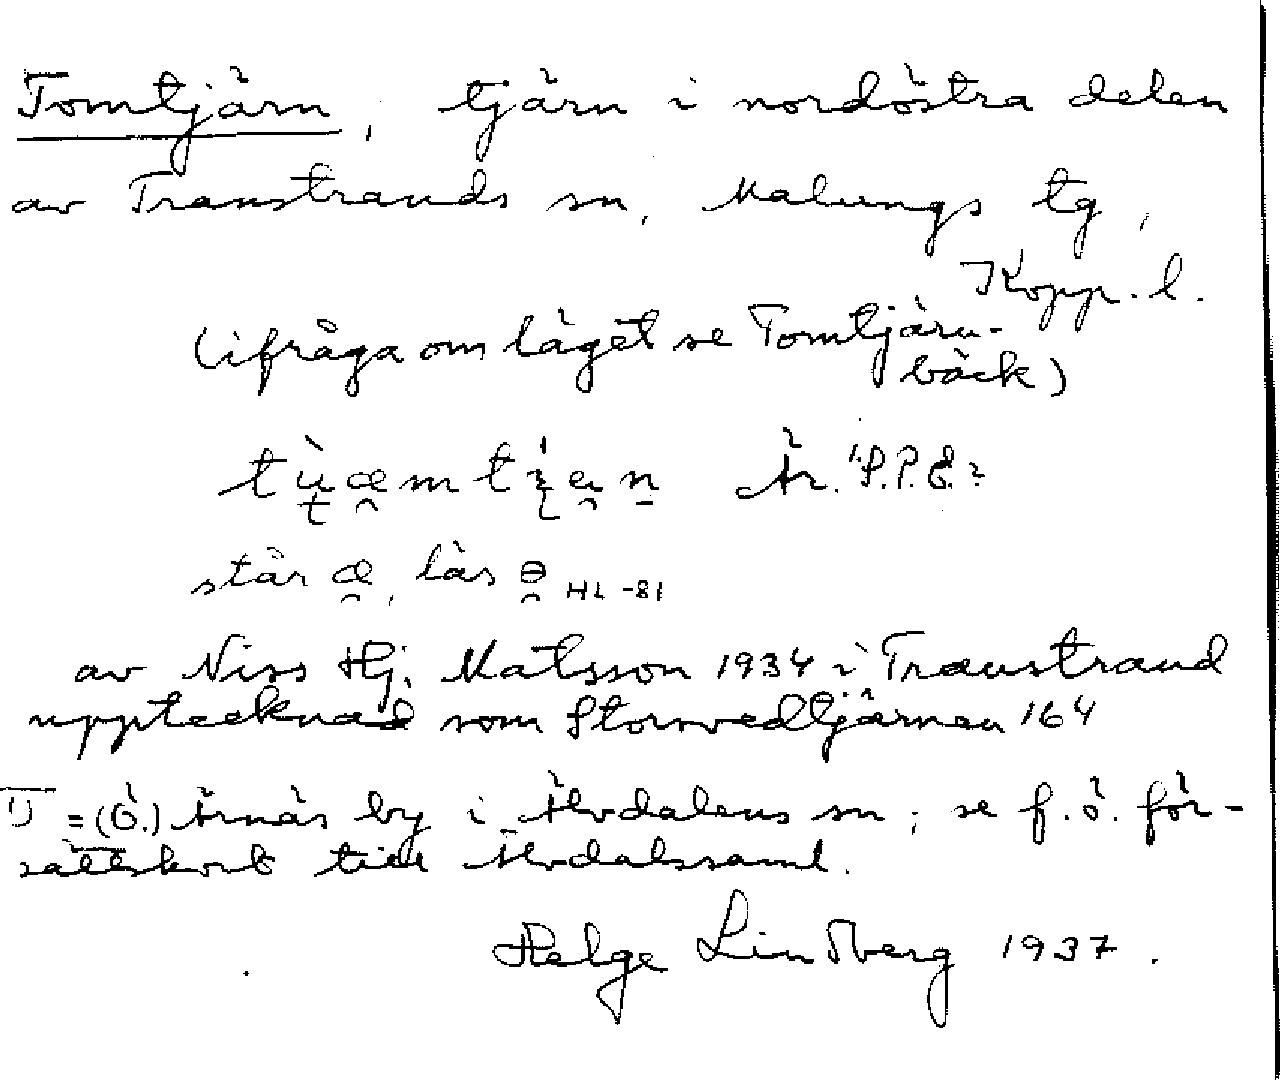 Tomtjärn, tjärn i nordöstra delen
av Transtrands sn, Malungs tg,
Kopp. l.
(ifråga om läget se Tomtjärn-
bäck)
Är. P.P.E.
står æ, läs ə HL -81
av Niss Hj. Matsson 1934 i Transtrand
upptecknad som Storvedtjärnen 164
1) = (Ö.) Ärnäs by i Älvdalens sn; se f.ö. för-
sättskort till Älvdalssaml.
Helge Lindberg 1937.